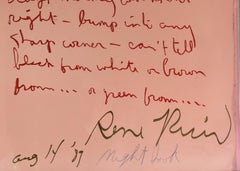 right - bump into any
sharp corner - can't tell
black from white or brown
from ... or green from ....
Rene Ricard
Aug 14 '89 night